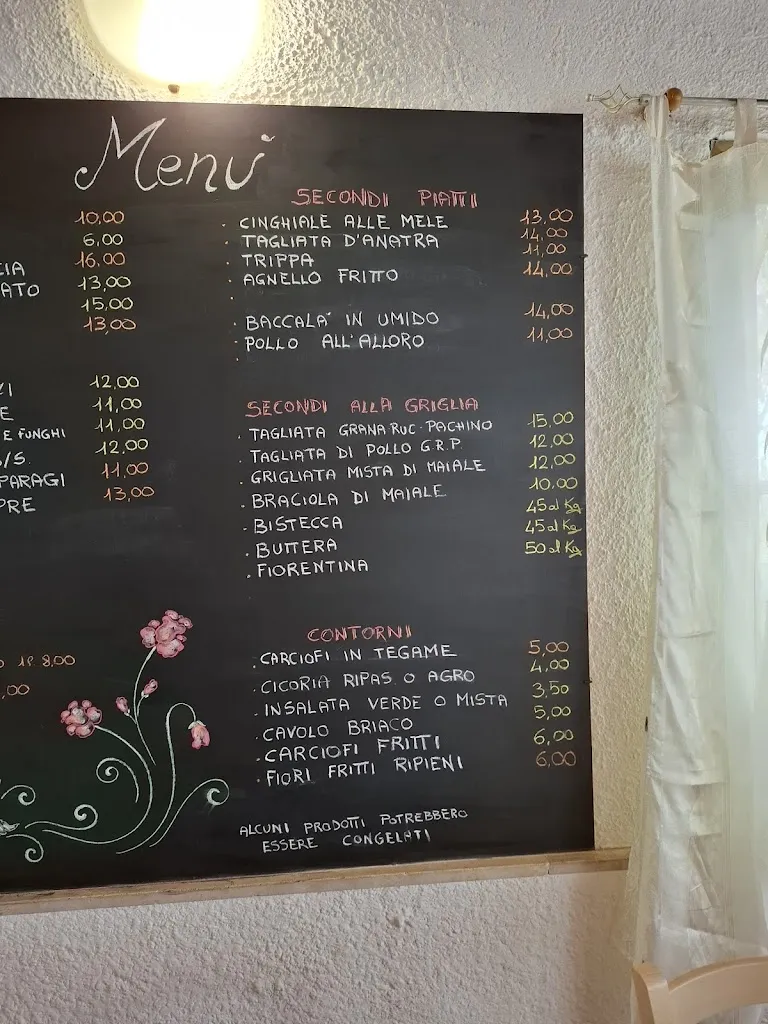 Menù
10,00
6,00
CIA 16,00
ATO 13,00
15,00
13,00
CI 12,00
E 11,00
E FUNGHI 11,00
S/S. 12,00
PARAGI 11,00
PRE 13,00
8,00
,00
SECONDI PIATTI
. CINGHIALE ALLE MELE 13,00
. TAGLIATA D'ANATRA 14,00
. TRIPPA 11,00
. AGNELLO FRITTO 14,00
. BACCALA' IN UMIDO 14,00
. POLLO ALL'ALLORO 11,00
SECONDI ALLA GRIGLIA
. TAGLIATA GRANA RUC. PACHINO 15,00
. TAGLIATA DI POLLO G.R.P. 12,00
. GRIGLIATA MISTA DI MAIALE 12,00
. BRACIOLA DI MAIALE 10,00
. BISTECCA 45 al Kg
. BUTTERA 45 al Kg
. FIORENTINA 50 al Kg
CONTORNI
. CARCIOFI IN TEGAME 5,00
. CICORIA RIPAS. O AGRO 4,00
. INSALATA VERDE O MISTA 3,50
. CAVOLO BRIACO 5,00
. CARCIOFI FRITTI 6,00
. FIORI FRITTI RIPIENI 6,00
ALCUNI PRODOTTI POTREBBERO
ESSERE CONGELATI